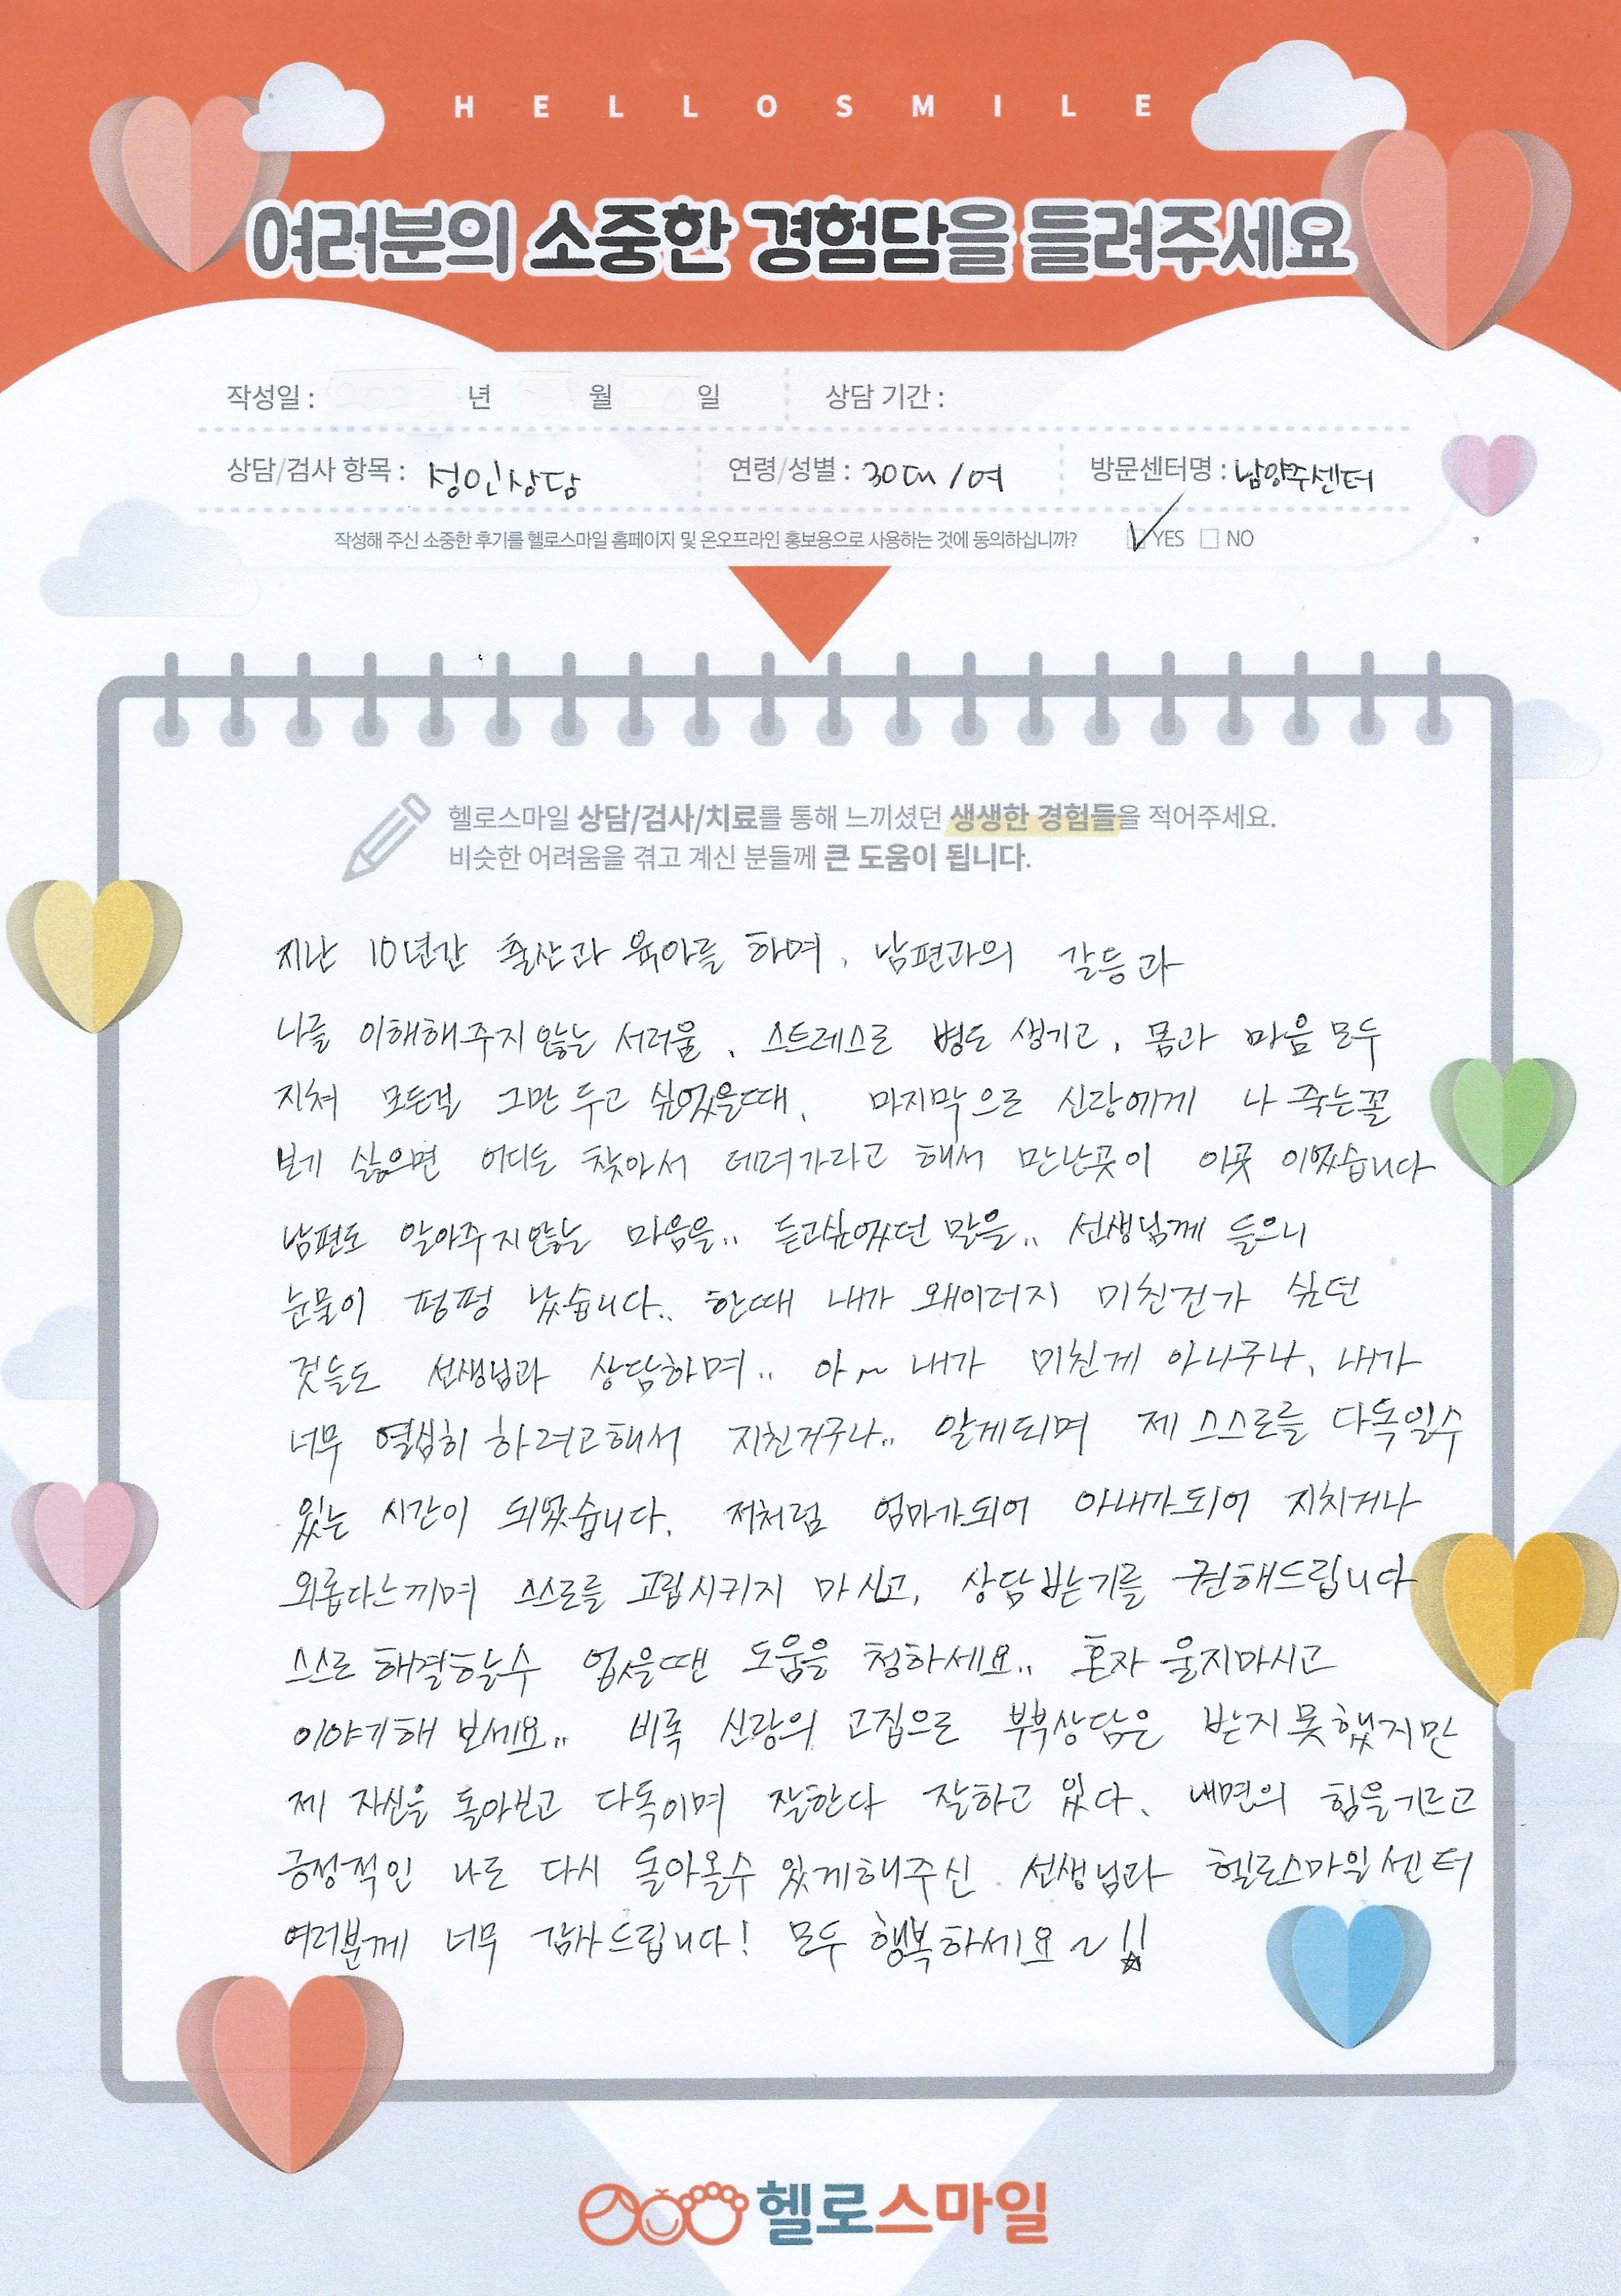 HELLOSMILE
여러분의 소중한 경험담을 들려주세요
작성일 : 년 월 일 상담 기간 :
상담/검사 항목 : 성인상담 연령/성별 : 30대 / 여 방문센터명 : 남양주센터
작성해 주신 소중한 후기를 헬로스마일 홈페이지 및 온오프라인 홍보용으로 사용하는 것에 동의하십니까? YES NO
헬로스마일 상담/검사/치료를 통해 느끼셨던 생생한 경험들을 적어주세요.
비슷한 어려움을 겪고 계신 분들께 큰 도움이 됩니다.
지난 10년간 출산과 육아를 하며, 남편과의 갈등과
나를 이해해주지 않는 서러움, 스트레스로 병도 생기고, 몸과 마음 모두
지쳐 모든걸 그만 두고 싶었을때, 마지막으로 신랑에게 나 죽는꼴
보기 싫으면 어디든 찾아서 데려가라고 해서 만난곳이 이곳 이었습니다
남편도 알아주지않는 마음을.. 듣고싶었던 말을.. 선생님께 들으니
눈물이 펑펑 났습니다.. 한때 내가 왜이러지 미친건가 싶던
것들도 선생님과 상담하며.. 아~ 내가 미친게 아니구나, 내가
너무 열심히 하려고해서 지친거구나.. 알게되며 제 스스로를 다독일수
있는 시간이 되었습니다. 저처럼 엄마가되어 아내가되어 지치거나
외롭다느끼며 스스로를 고립시키지 마시고, 상담받기를 권해드립니다
스스로 해결할수 없을땐 도움을 청하세요.. 혼자 울지마시고
이야기해 보세요.. 비록 신랑의 고집으로 부부상담은 받지못했지만
제 자신을 돌아보고 다독이며 잘한다 잘하고 있다, 내면의 힘을기르고
긍정적인 나로 다시 돌아올수 있게해주신 선생님과 헬로스마일센터
여러분께 너무 감사드립니다! 모두 행복하세요~!!
헬로스마일